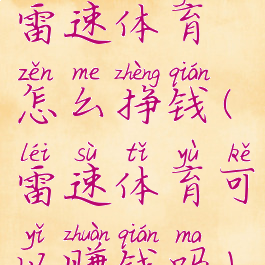 雷速体育
zěn me zhèng qián
怎么挣钱(
léi sù tǐ yù kě
雷速体育可
yǐ zhuàn qián ma
以赚钱吗)